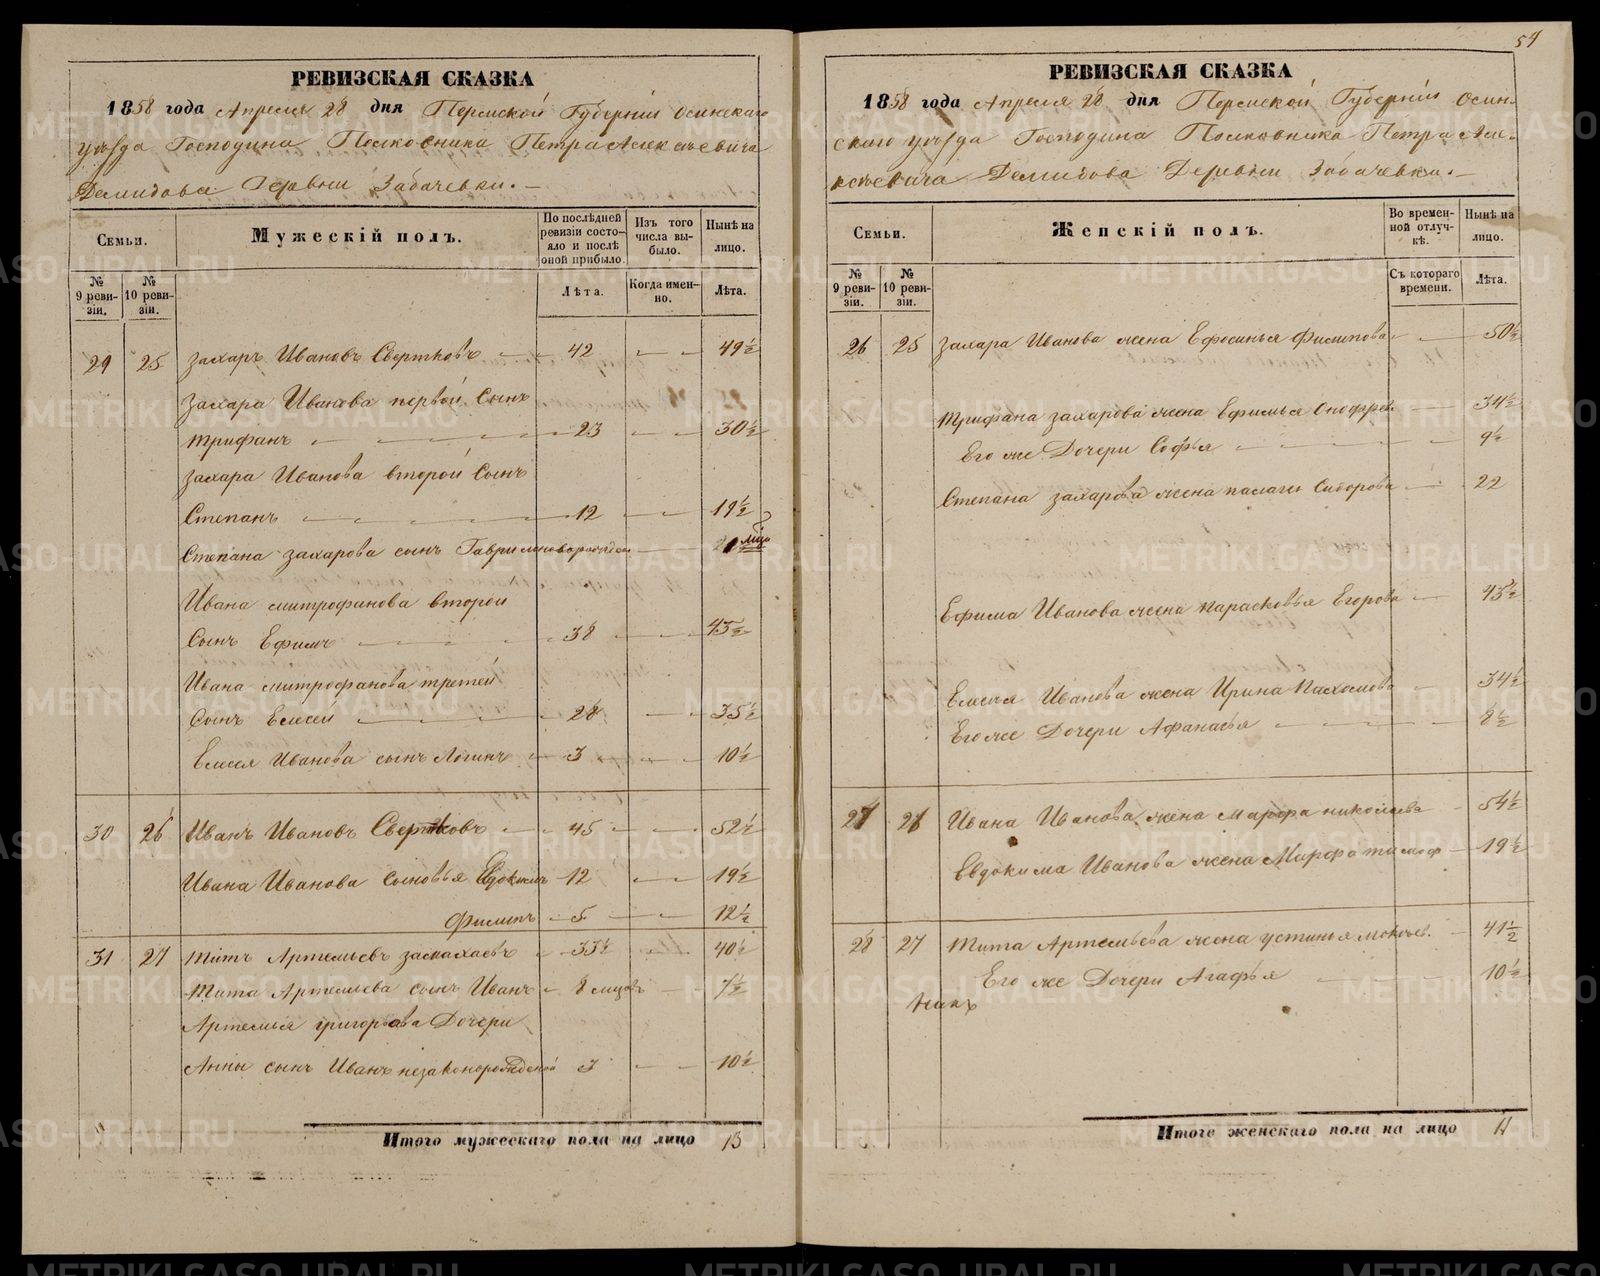 54
РЕВИЗСКАЯ СКАЗКА
1858 года Апреля 28 дня Пермской Губернiи Осинскаго
уѣзда Господина Полковника Петра Алексѣевича
Демидова Деревни Забачевки.
Семьи.
Мужескій полъ.
По послѣдней ревизіи состояло и послѣ оной прибыло.
Изъ того числа выбыло.
Нынѣ на лицо.
№ 9 ревизіи.
№ 10 ревизіи.
Лѣта.
Когда именно.
Лѣта.
29 25 Захаръ Ивановъ Свертковъ 42 49½
Захара Иванова первой Сынъ
Трифанъ 23 30½
Захара Иванова второй Сынъ
Степанъ 12 19½
Степана Захарова сынъ
Ивана Митрофанова второй
Сынъ Ефимъ 38 45½
Ивана Митрофанова третей
Сынъ Елесей 28 35½
Елесея Иванова сынъ Логинъ 3 10½
30 26 Иванъ Ивановъ Свертковъ 45 52½
Ивана Иванова Сыновья Евдокимъ 12 19½
Филипъ 5 12½
31 27 Титъ Артемьевъ 33½ 40½
Тита Артемьева сынъ Иванъ 8 мцовъ 7½
Артемья Григорьева Дочери
Анны сынъ Иванъ незаконорожденой 3 10½
Итого мужескаго пола на лицо 13
РЕВИЗСКАЯ СКАЗКА
1858 года Апреля 28 дня Пермской Губернiи Осин-
скаго уѣзда Господина Полковника Петра Але-
ксѣевича Демидова Деревни Забачевки.
Семьи.
Женскій полъ.
Во временной отлучкѣ.
Нынѣ на лицо.
№ 9 ревизіи.
№ 10 ревизіи.
Съ котораго времени.
Лѣта.
26 25 Захара Иванова жена Ефосинья Филипова 50½
Трифана Захарова жена Ефимья Онофрей 34½
Его же Дочери Софья 9½
Степана Захарова жена Сидорова 22
Ефима Иванова жена Парасковья Егорова 45½
Елесея Иванова жена Ирина Пахомова 34½
Его же Дочери Афанасья 8½
27 26 Ивана Иванова жена Марфа Николаева 54½
Евдокима Иванова жена Марфа Тимоф 19½
28 27 Тита Артемьева жена Устинья 41½
Его же Дочери Агафья 10½
Итого женскаго пола на лицо 11
METRIKI.GASO-URAL.RU